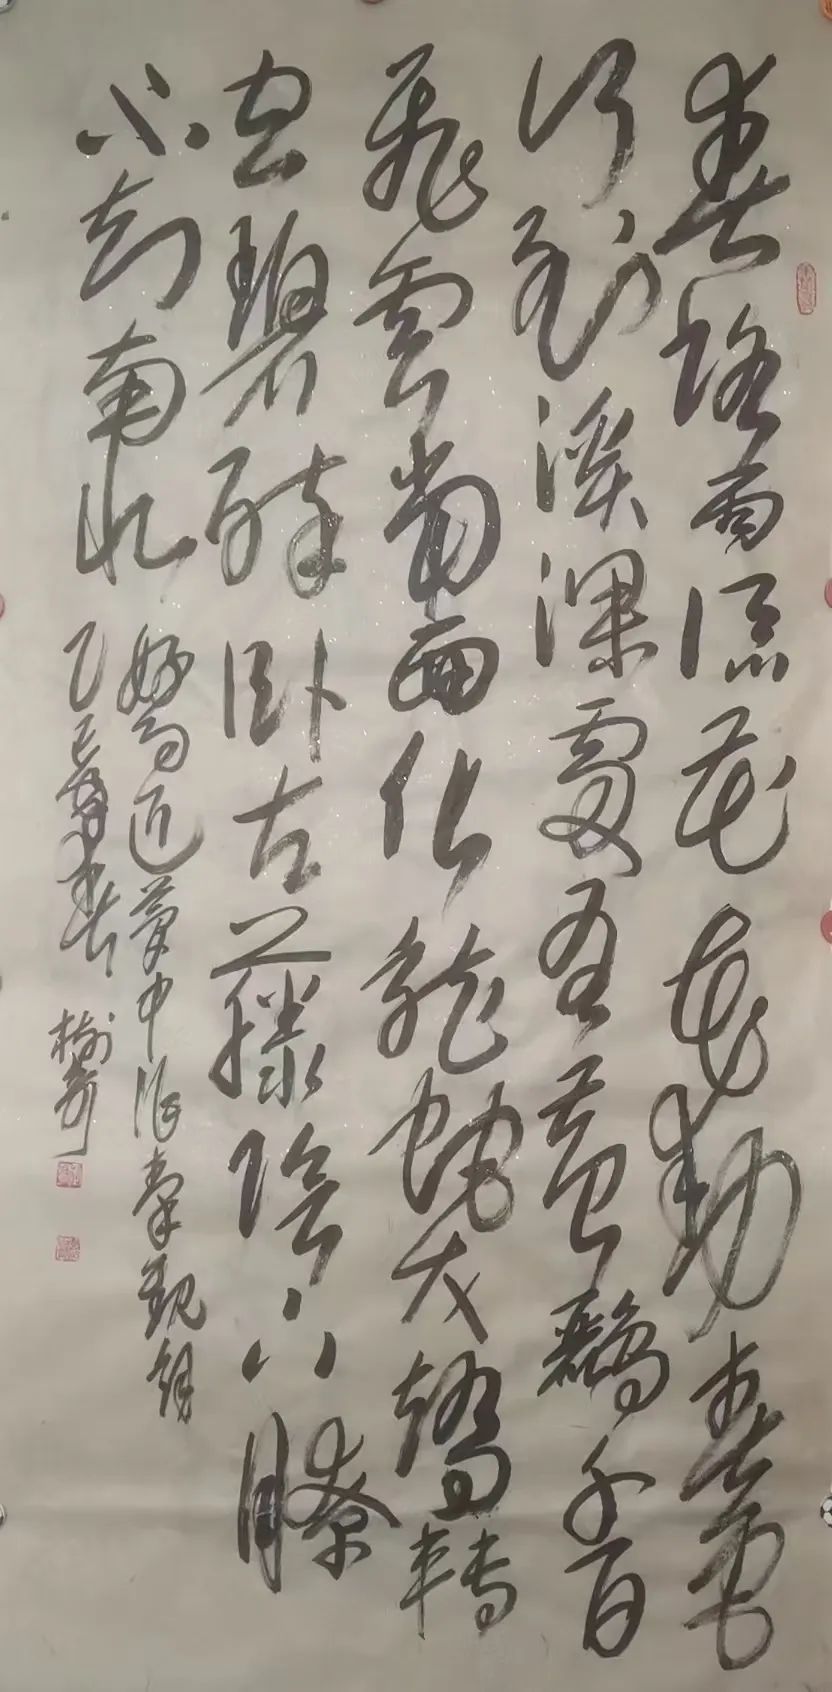 春路雨添花花動春色
行到溪深處有黃鸝千百
飛雲當面化龍蛇夭矯轉
空碧醉卧古藤陰下瞭
不知南北
好事近夢中作秦觀詞
乙巳春 樹奇